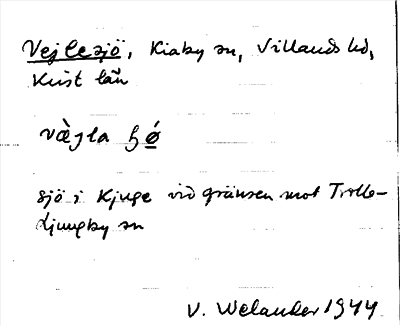 Vejlesjö, Kiaby sn, Villands hd,
Krist län
væ̀jla ʂǿ
sjö i Kjuge vid gränsen mot Trolle-
Ljungby sn
V. Welander 1944